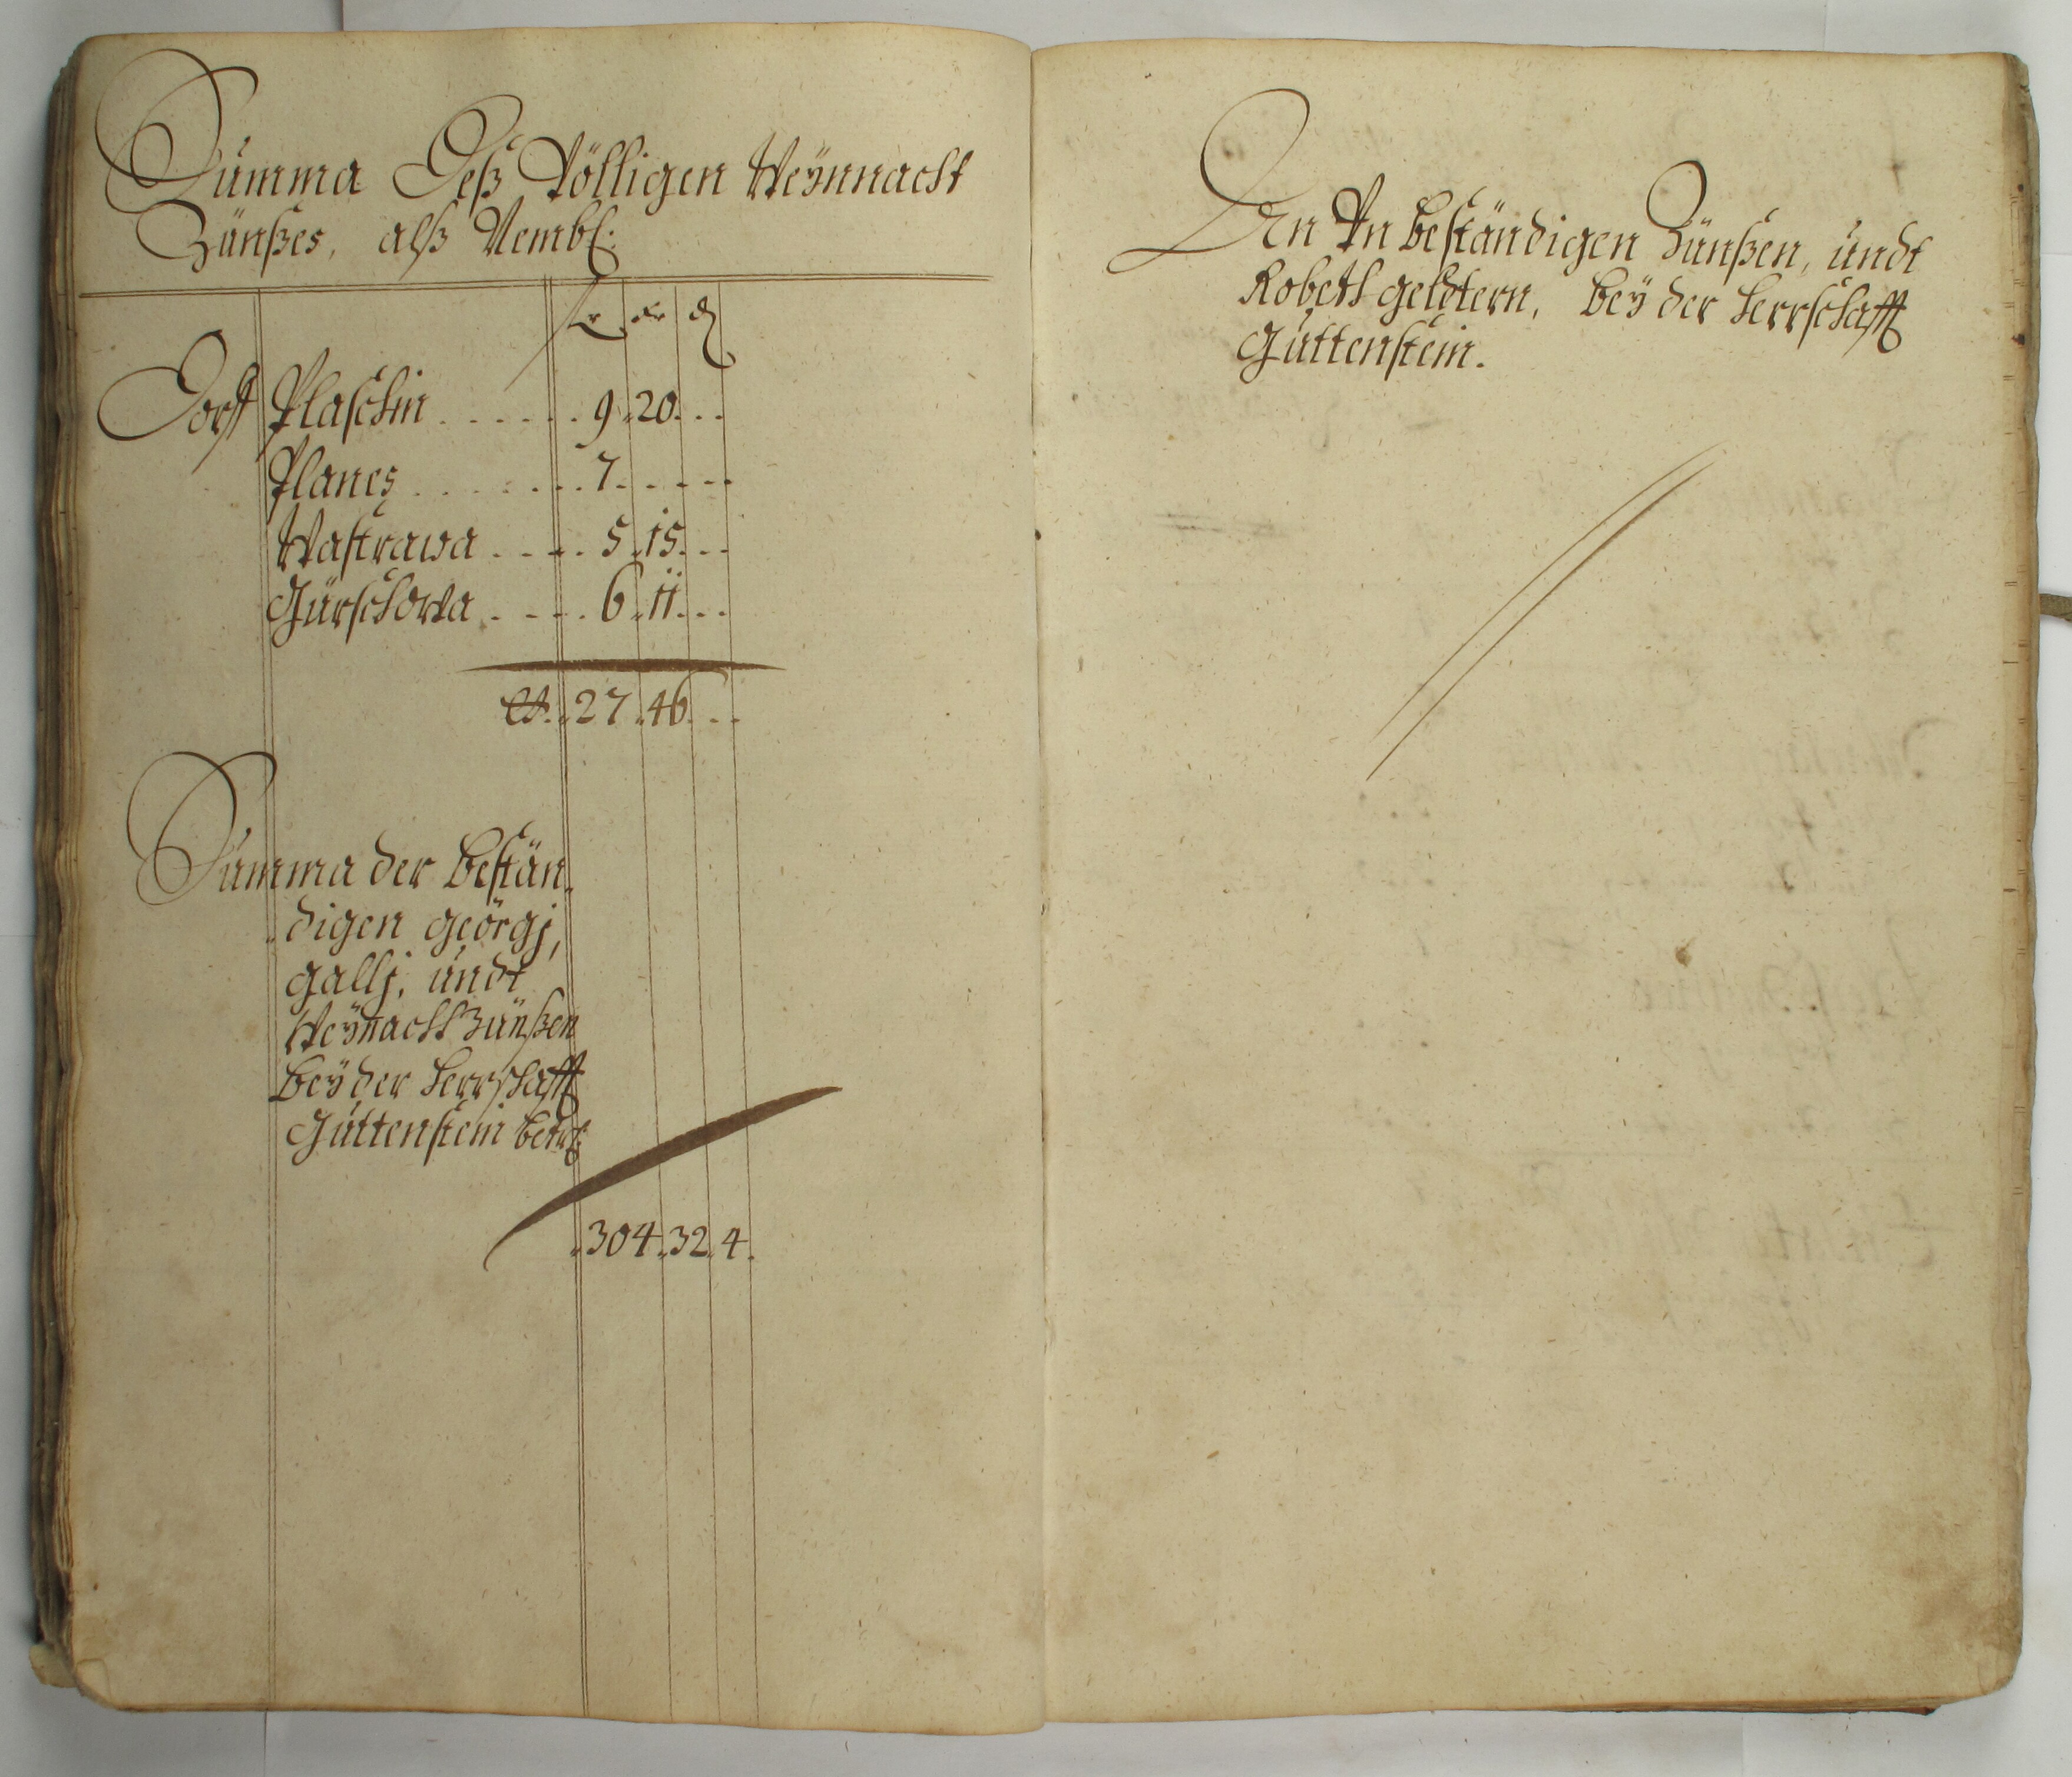 Summa Deß Völligen Weÿnnacht
Zünßes, alß Nembl:
fl xr ₰
Dorff Plaschin . . . . . . 9 . 20 . . .
Planes . . . . . . . . 7 . . . . .
Wastrawa . . . . . 5 . 15 . . .
Gürschowa . . . . . 6 . 11 . . .
27 . 46 . . .
Summa der Bestän-
digen Georgj,
Gallj, undt
Weÿnacht Zünßen
beÿ der Herrschafft
Guttenstein betr:
304 . 32 . 4 .
An Un Beständigen Zünßen, undt
Robeth geldtern, beÿ der Herrschafft
Guttenstein.